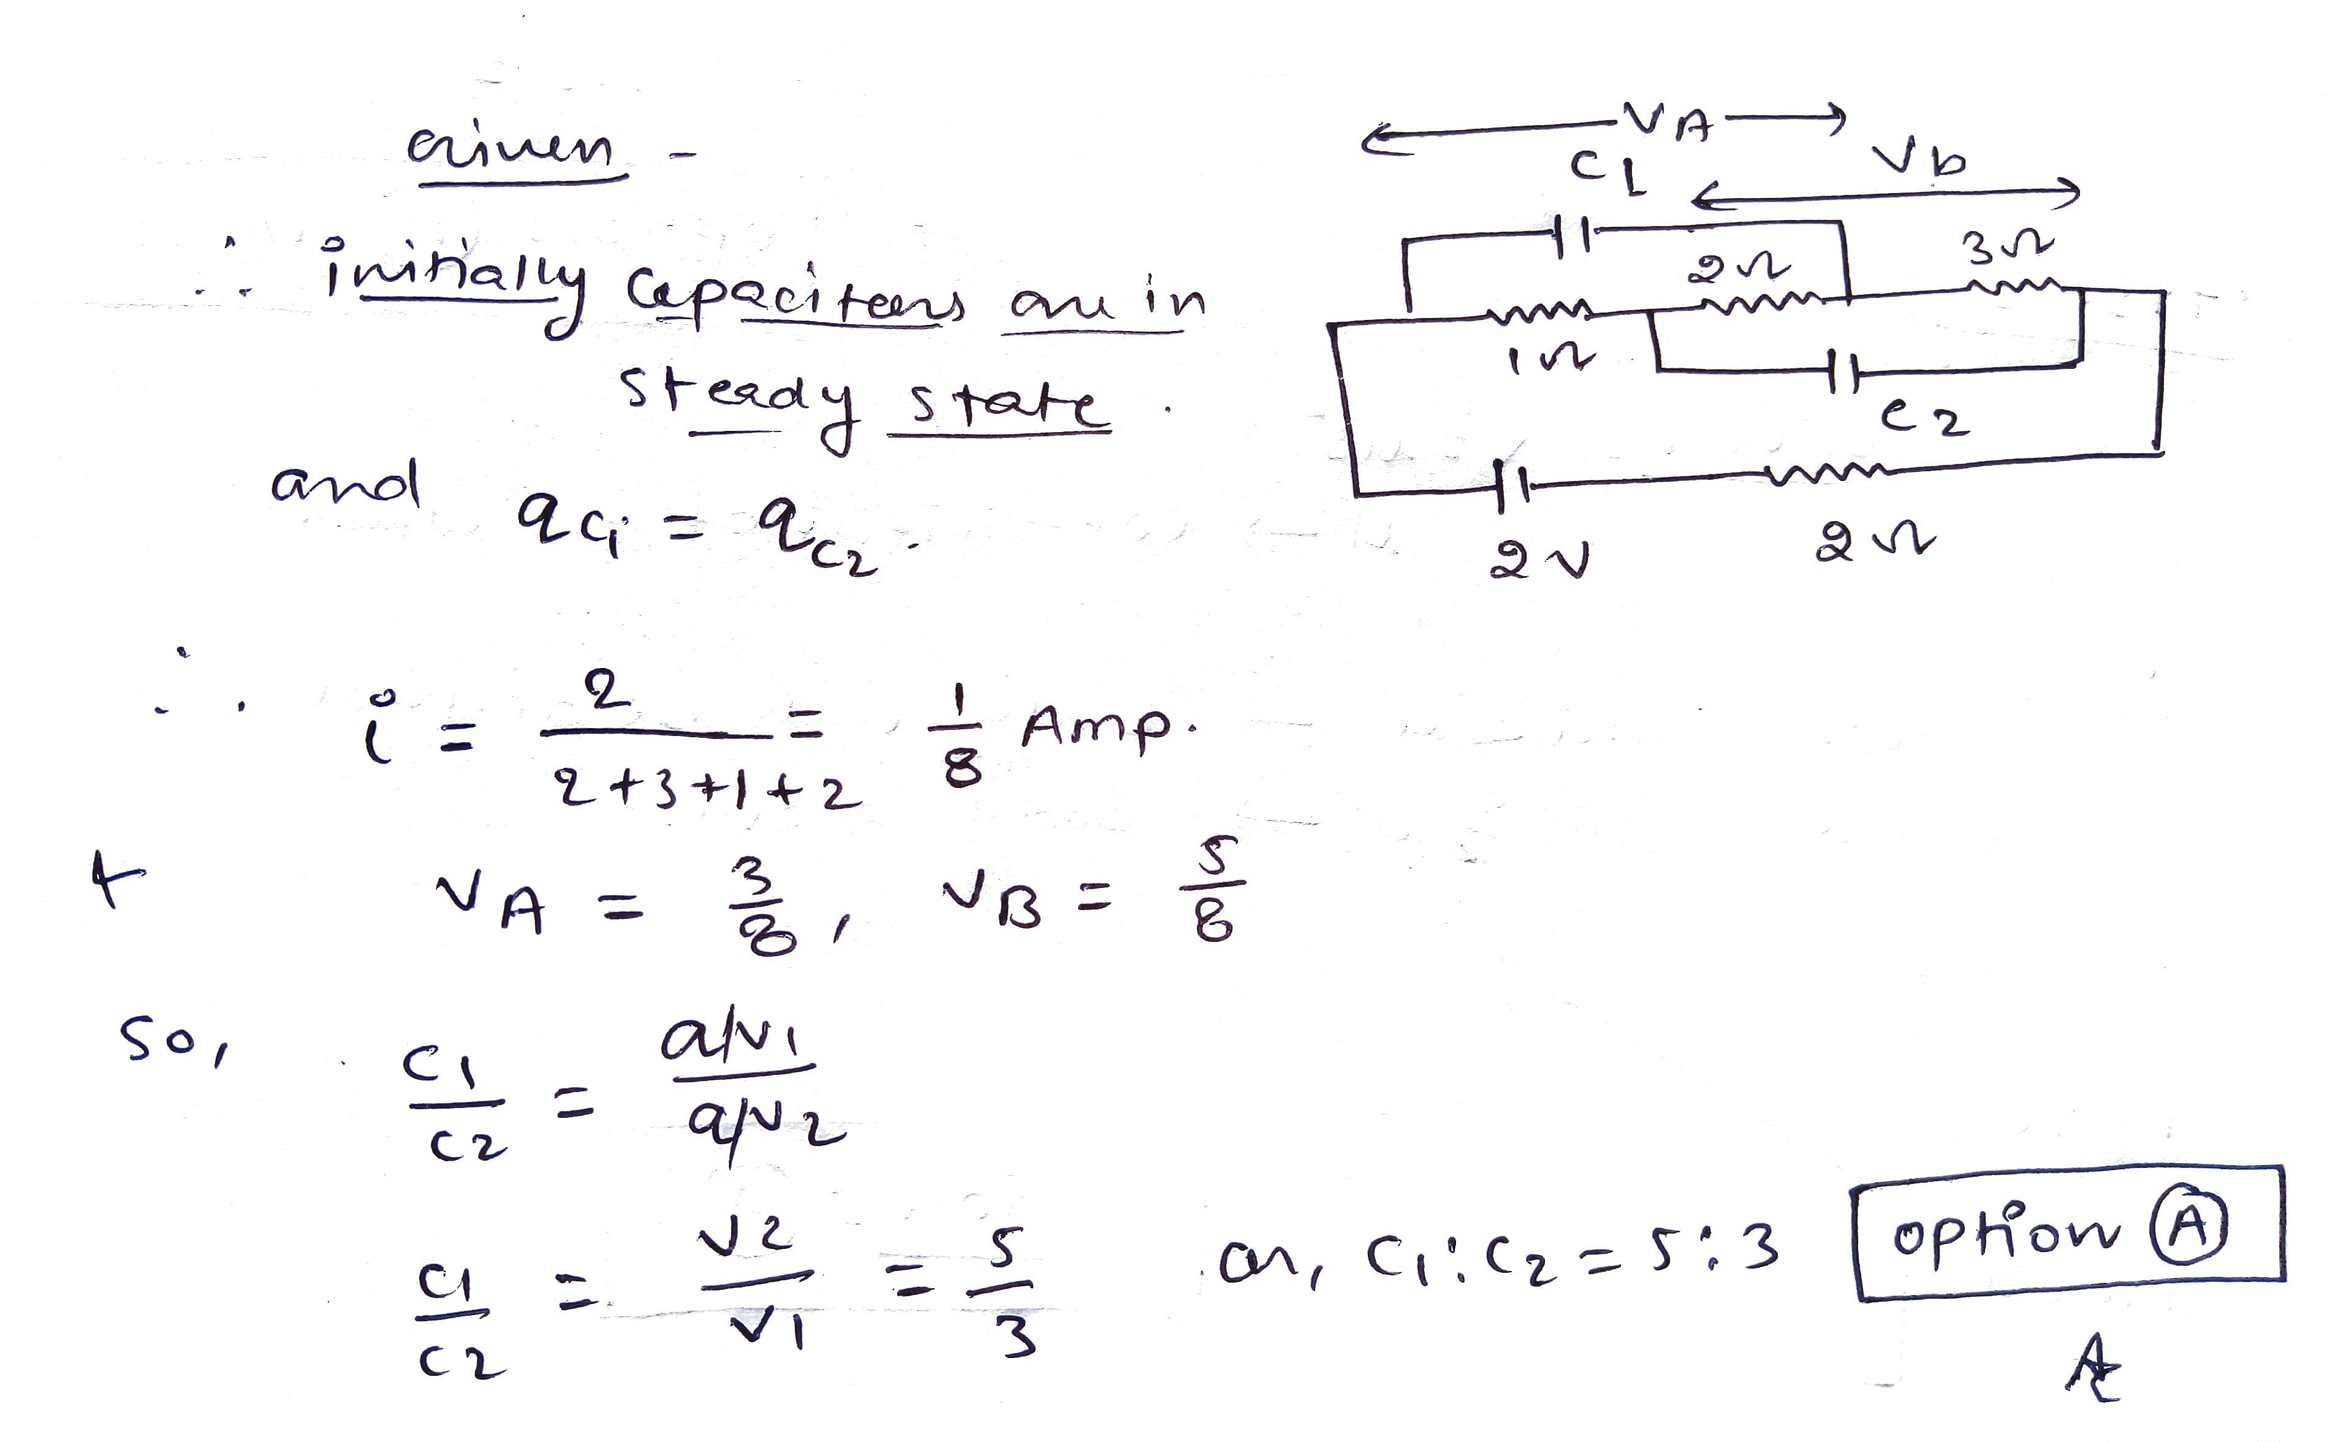 Given -
∴ initially capacitors are in
steady state.
and qC1 = qC2.
VA
C1
Vb
2Ω
3Ω
1Ω
C2
2V
2Ω
∴ i = 2/(2+3+1+2) = 1/8 Amp.
+ VA = 3/8, VB = 5/8
So, C1/C2 = (q/V1)/(q/V2)
C1/C2 = V2/V1 = 5/3 or, C1:C2 = 5:3
option Ⓐ